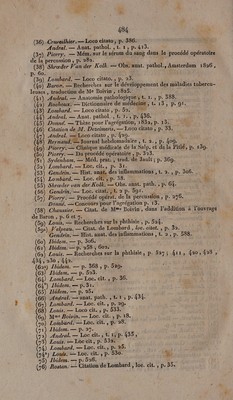 484
(36) Cruveilhier. — Loco citato, p. 386.
Andral. — Anat. pathol., t. 1, p. 413.
(37) Piorry. — Mém. sur le sérum du sang dans le procédé opératoire
de la percussion, p. 282.
(38) Shroder Van der Kolk. — Obs. anat. pathol., Amsterdam 1826,
p. 60.
(39) Lombard. — Loco citato, p. 23.
(40) Baron. — Recherches sur le développement des maladies tubercu-
leuses, traduction de Mme Boivin, 1825.
(41) Andral. — Anatomie pathologique, t. 1, p. 388.
(42) Rochoux. — Dictionnaire de médecine, t. 13, p. 91.
(43) Lombard. — Loco citato, p. 32.
(44) Andral. — Anat. pathol., t. 1, p. 436.
(45) Desmé. — Thèse pour l'agrégation, 1832, p. 13.
(46) Citation de M. Dezeimeris. — Loco citato, p. 33.
(47) Andral. — Loco citato, p. 429.
(48) Reynaud. — Journal hebdomadaire, t. 2, p. 590.
(49) Piorry. — Clinique médicale de la Salp. et de la Pitié, p. 139.
(50) Piorry. — Du procédé opératoire, p. 323.
(51) Sydenham. — Med. prac., trad. de Jault, p. 309.
(52) Lombard. — Loc. cit., p. 31.
(53) Gendrin. — Hist. anat. des inflammations, t. 2, p. 306.
(54) Lombard. — Loc. cit., p. 38.
(55) Shroder van der Kolk. — Obs. anat. path., p. 64.
(56) Gendrin. — Loc. citat., t. 2, p. 591.
(57) Piorry. — Procédé opérat. de la percussion, p. 276.
Desmé. — Concours pour l'agrégation, p. 13.
(58) Chaussier. — Citat. de Mme Boivin, dans l'addition à l'ouvrage
de Baron, p. 6 et 7.
(59) Louis. — Recherches sur la phthisie, p. 524.
(59) Velpeau. — Citat. de Lombard, loc. citat., p. 32.
Gendrin. — Hist. anat. des inflammations, t. 2, p. 588.
(60) Ibidem. — p. 306.
(61) Ibidem. — p. 258, 602.
(62) Louis. — Recherches sur la phthisie, p. 527; 411, 420, 428,
434, 430, 440.
(62) Ibidem. — p. 368, 529.
(63) Ibidem. — p. 523.
(64) Lombard. — Loc. cit., p. 36.
(64) Ibidem. — p. 31.
(65) Ibidem. — p. 25.
(66) Andral. — anat. path., t. 1, p. 434.
(67) Lombard. — Loc. cit., p. 29.
(68) Louis. — Loco cit., p. 533.
(69) Mme Boivin. — Loc. cit., p. 18.
(70) Lombard. — Loc. cit., p. 28.
(71) Ibidem. — p. 27.
(72) Andral. — Loc. cit., t. 1, p. 435.
(73) Louis. — Loc cit., p. 532.
(74) Lombard. — Loc. cit., p. 25.
Louis. — Loc. cit., p. 530.
(75) Ibidem. — p. 528.
(76) Baston. — Citation de Lombard, loc. cit., p. 35.